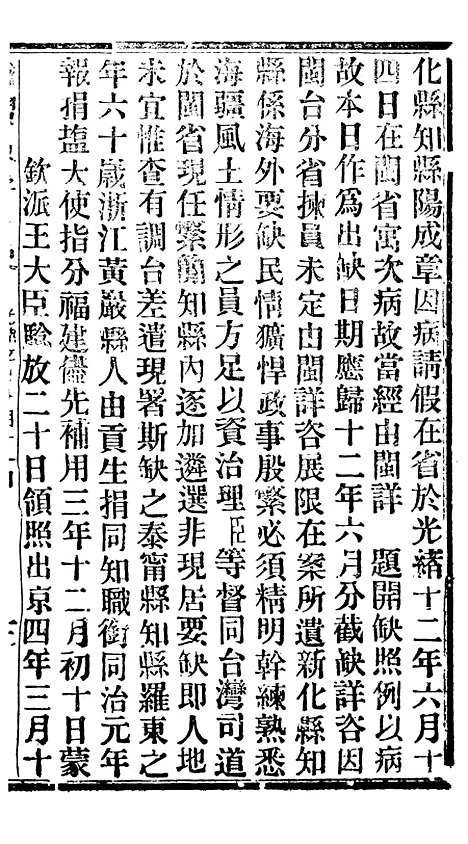 化縣知縣陽成章因病請假在省於光緒十二年六月十
四日在閩省寓次病故當經由閩詳　題開缺照例以病
故本日作爲出缺日期應歸十二年六月分截缺詳咨因
閩台分省揀員未定由閩詳咨展限在案所遺新化縣知
縣係海外要缺民情獷悍政事殷繁必須精明幹練熟悉
海疆風土情形之員方足以資治理臣等督同台灣司道
於閩省現任繁簡知縣內逐加遴選非現居要缺即人地
未宜惟查有調台差遣現署斯缺之泰甯縣知縣羅東之
年六十歲浙江黃巖縣人由貢生捐同知職銜同治元年
報捐鹽大使指分福建儘先補用三年十二月初十日蒙
欽派王大臣驗放二十日領照出京四年三月十